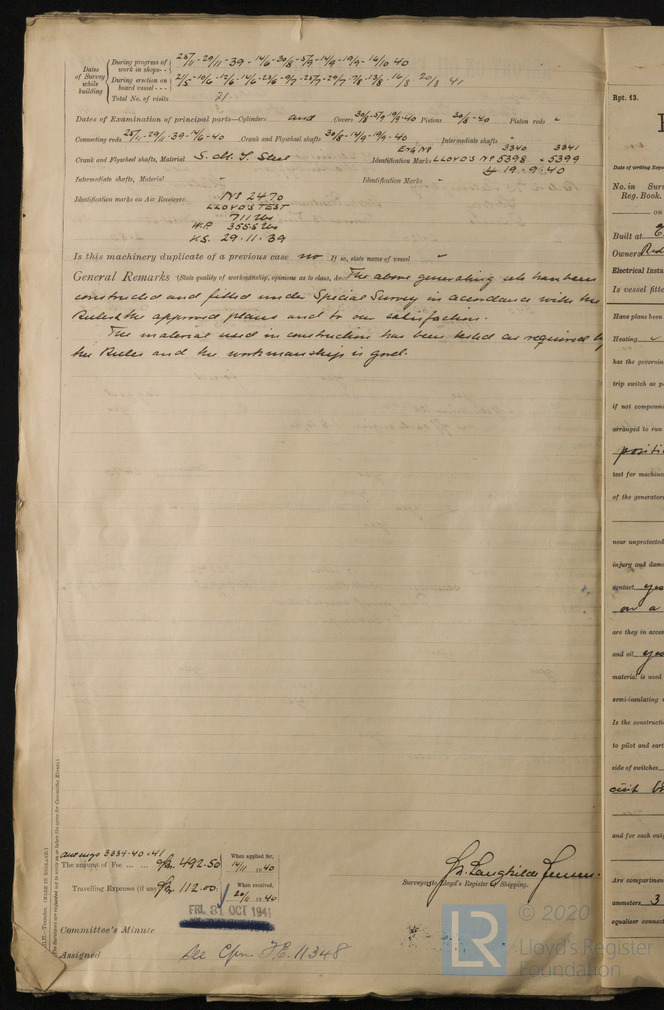 Dates of Survey while building
During progress of work in shops - - 25/11 - 29/11 - 39 - 14/6 - 30/8 - 5/9 - 14/9 - 19/9 - 16/10 40
During erection on board vessel - - - 2/5 - 10/6 - 12/6 - 14/6 - 23/6 - 9/7 - 25/7 - 29/7 - 7/8 - 13/8 - 16/8 20/8 41
Total No. of visits 21
Dates of Examination of principal parts—Cylinders and Covers 30/8-5/9-19/9-40 Pistons 30/8-40 Piston rods "
Connecting rods 25/11-29/11-39-14/6-40 Crank and Flywheel shafts 30/8-14/9-19/9-40 Intermediate shafts "
Eng Nº 3340 3341
Crank and Flywheel shafts, Material S. M. I. Steel Identification Marks LLOYD'S Nº 5398 - 5399
19-9-40
Intermediate shafts, Material " Identification Marks "
Identification marks on Air Receivers Nº 2470
LLOYD'S TEST
711 lbs
W.P. 355.5 lbs
KS. 29.11.39
Is this machinery duplicate of a previous case no If so, state name of vessel "
General Remarks (State quality of workmanship, opinions as to class, &c. The above generating sets have been
constructed and fitted under Special Survey in accordance with the
Rules the approved plans and to our satisfaction.
The material used in construction has been tested as required by
the Rules and the workmanship is good.
3034-40-41
The amount of Fee ... ... 492.50 When applied for, 14/11 19 40
Travelling Expenses (if any) 112.00 When received, 20/11 19 40
Surveyor to Lloyd's Register of Shipping.
FRI. 31 OCT 1941
Committee's Minute
Assigned See F.E. 11348
(MADE IN ENGLAND.)
Rpt. 13.
Date of writing Repor
No. in Surv
Reg. Book.
on
Built at
Owners
Electrical Insta
Is vessel fitte
Have plans been
Heating
has the governin
trip switch as p
if not compound
arranged to run
positi
test for machine
of the generators
near unprotected
injury and dama
contact yes
on a
are they in acces
and oil yes
material is used
semi-insulating
Is the constructio
to pilot and eart
side of switches
and for each outg
Are compartmen
ammeters 3
equaliser connect
LR
© 2020
Lloyd's Register
Foundation